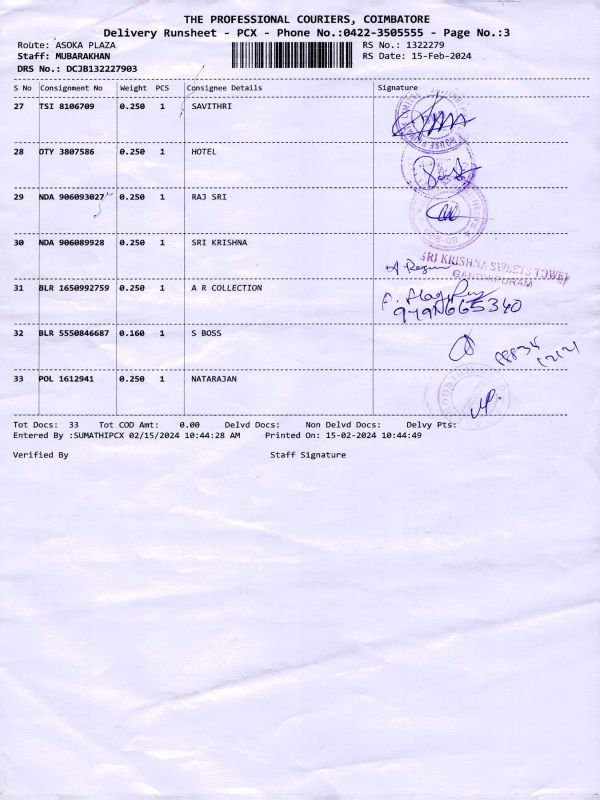 THE PROFESSIONAL COURIERS, COIMBATORE
Delivery Runsheet - PCX - Phone No.:0422-3505555 - Page No.:3
Route: ASOKA PLAZA RS No.: 1322279
Staff: MUBARAKHAN RS Date: 15-Feb-2024
DRS No.: DCJB132227903
S No Consignment No Weight PCS Consignee Details Signature
27 TSI 8106709 0.250 1 SAVITHRI
28 DTY 3807586 0.250 1 HOTEL
29 NDA 906093027 0.250 1 RAJ SRI
30 NDA 906089928 0.250 1 SRI KRISHNA
SRI KRISHNA SWEETS TOWER
GANDHIPURAM
31 BLR 1650992759 0.250 1 A R COLLECTION
32 BLR 5550846687 0.160 1 S BOSS
33 POL 1612941 0.250 1 NATARAJAN
Tot Docs: 33 Tot COD Amt: 0.00 Delvd Docs: Non Delvd Docs: Delvy Pts:
Entered By :SUMATHIPCX 02/15/2024 10:44:28 AM Printed On: 15-02-2024 10:44:49
Verified By Staff Signature